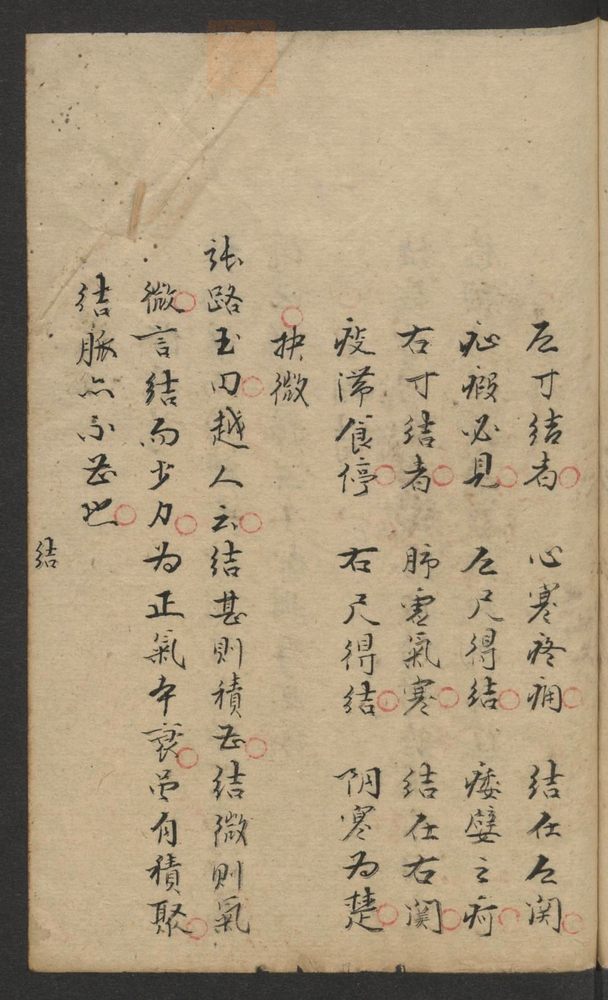 左寸结者 心寒疼痛 结在左関
疝瘕必見 左尺得结 痿躄之疴
右寸结者 肺虚氣寒 结在右関
痰滞食停 右尺得结 阴寒為楚
抉微
張路玉曰越人云结甚則積甚结微則氣
微言结而少力为正氣本衰虽有積聚
结脈亦不甚也
结